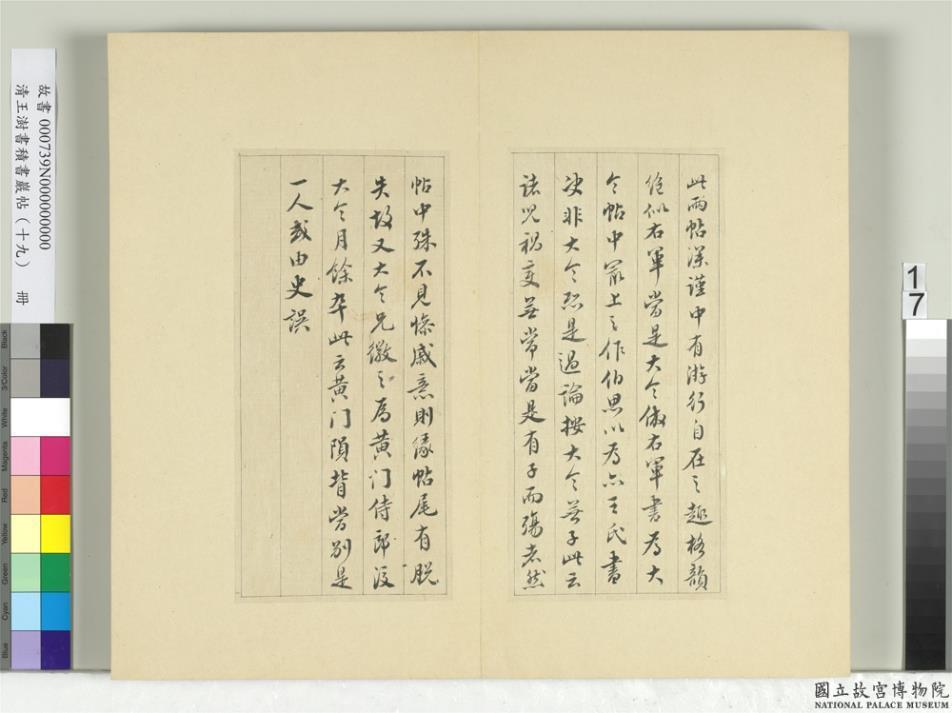 此兩帖深謹中有游行自在之趣格韻
絕似右軍當是大令倣右軍書為大
令帖中最上之作伯思以為亦王氏書
決非大令恐是過論按大令無子此云
諸兒禍變無常當是有子而殤者然
帖中殊不見慘戚意則緣帖尾有脫
失故又大令兄徽之為黃門侍郎沒
大令月餘卒此云黃門隕背當別是
一人或由史誤
故書 000739N000000000
清王澍書積書巖帖(十九) 冊
1
7
Black
3/Color
White
Magenta
Red
Yellow
Green
Cyan
Blue
國立故宮博物院
NATIONAL PALACE MUSEUM